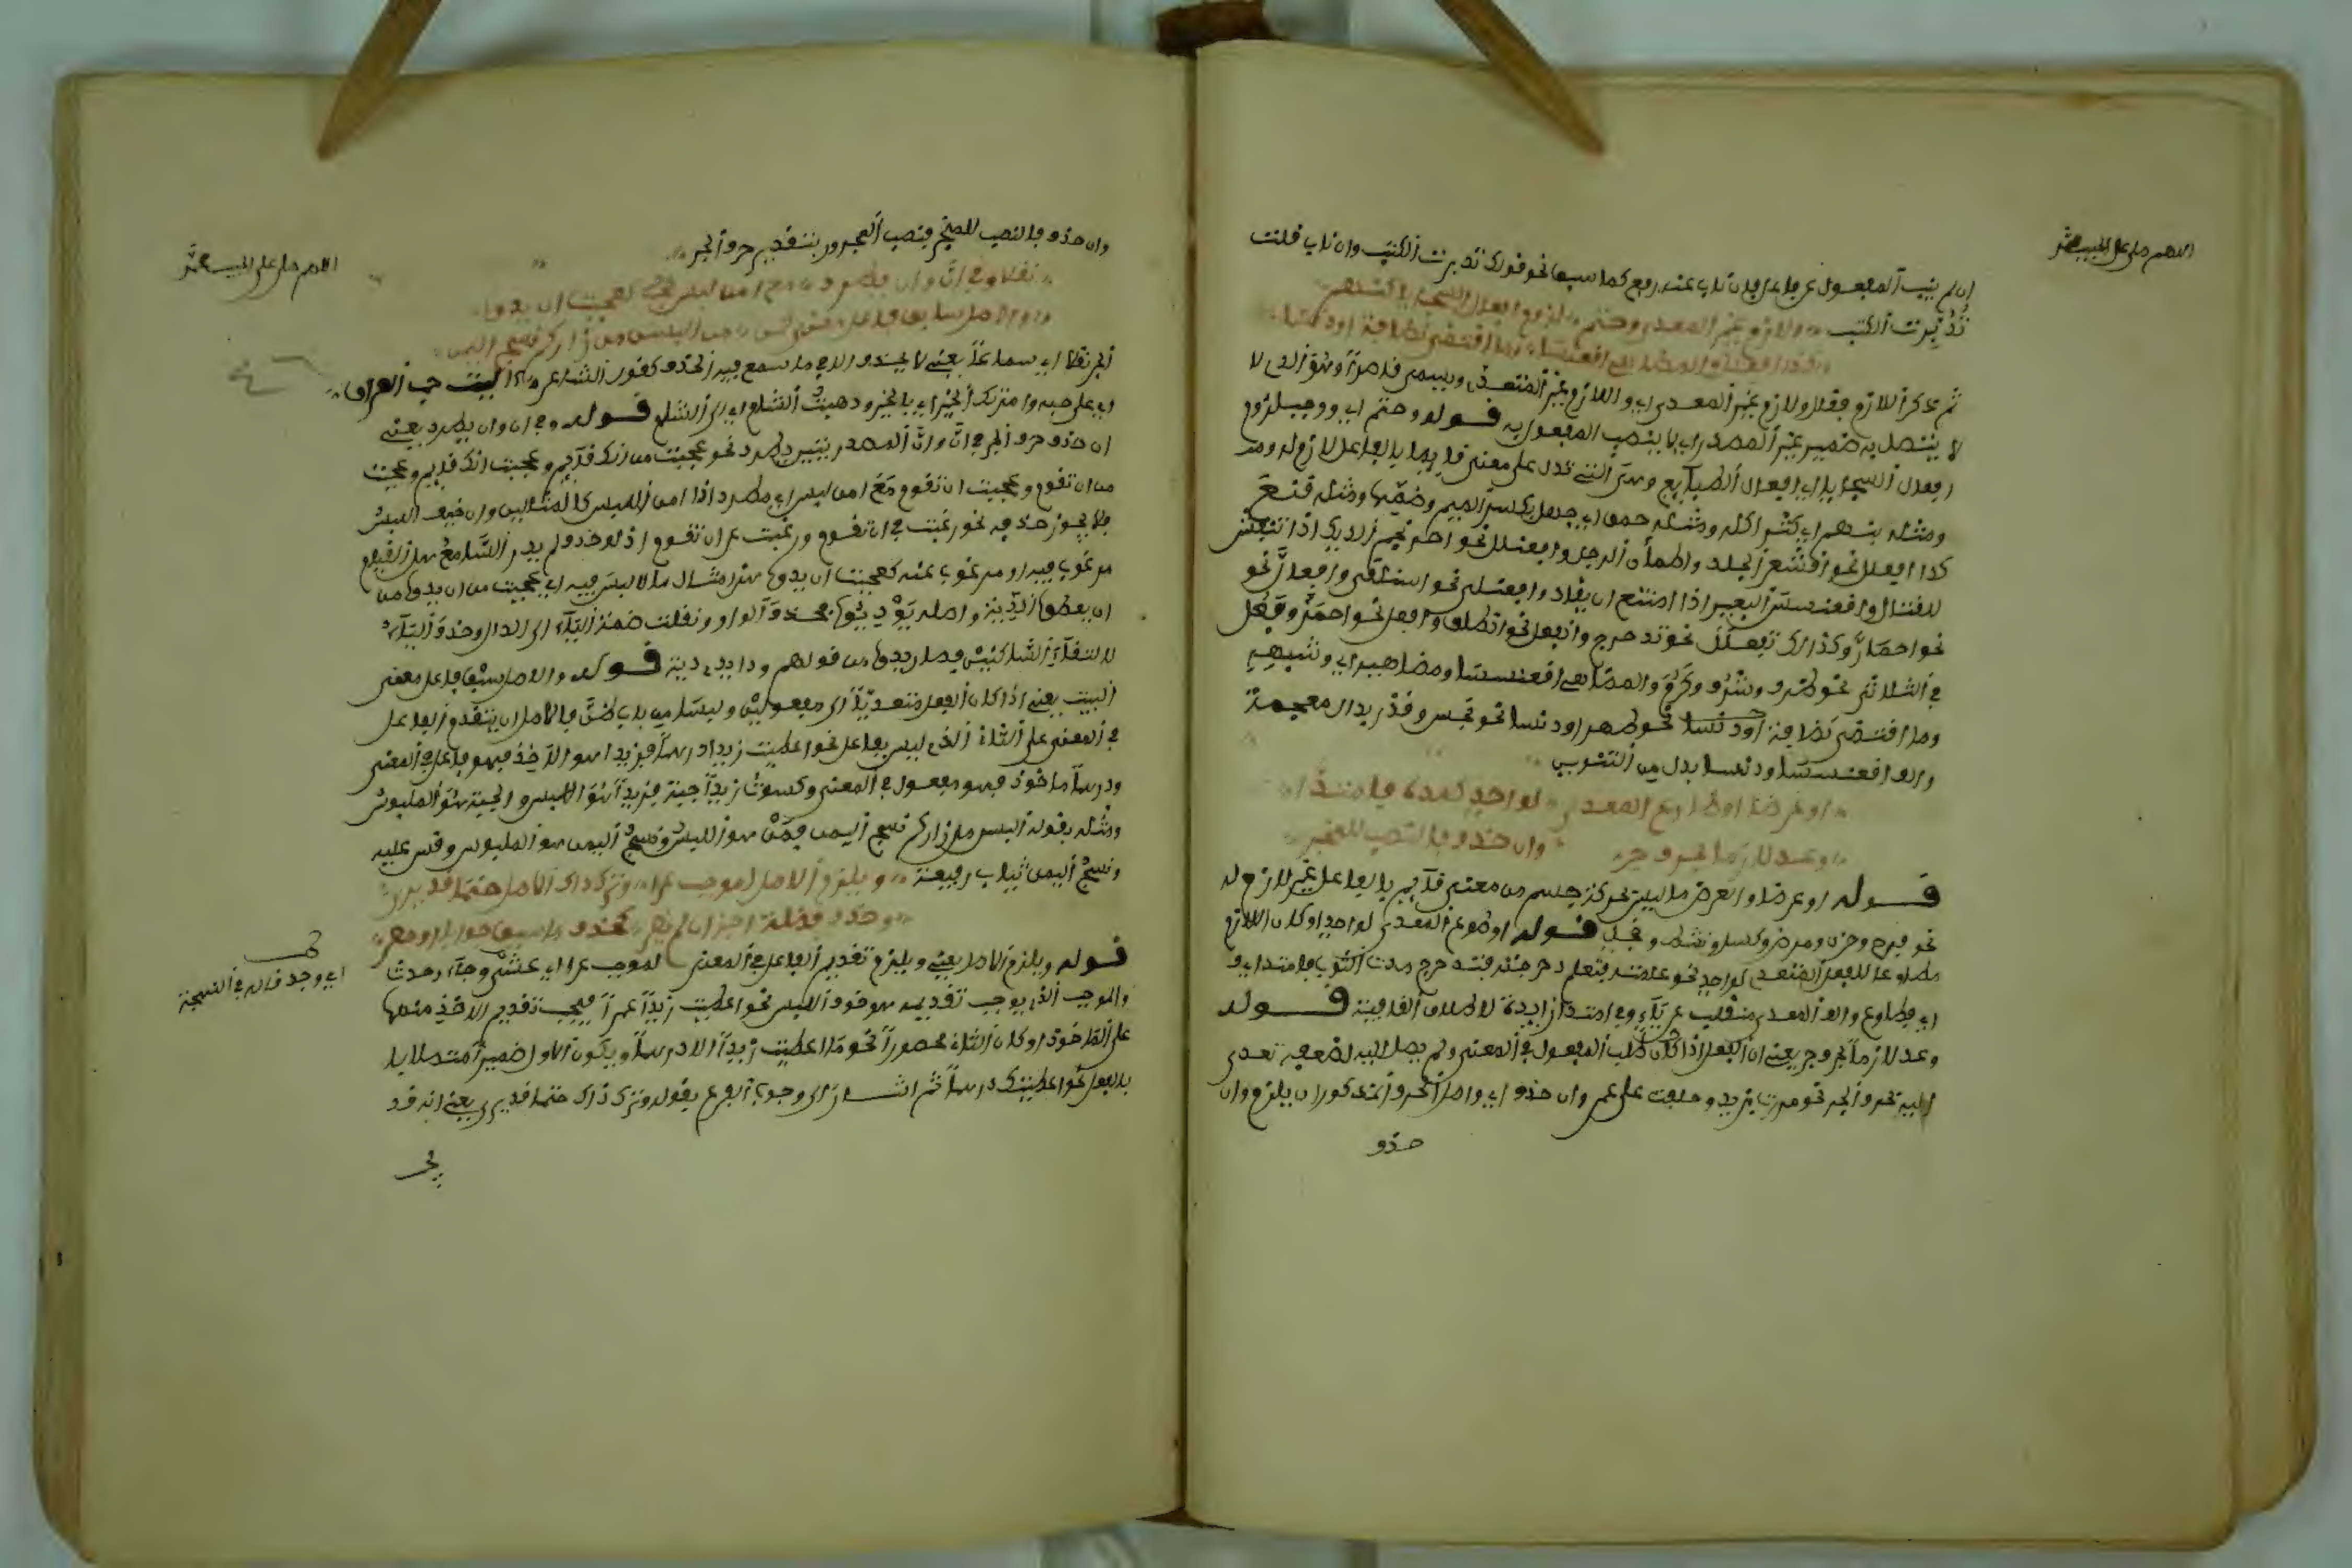 اللهم صل على الحبيب محمد
ان لم ينب المفعول عن فاعل فان ناب عنه رفع كما سبق نحو قولك تدبرت الكتب وان ناب قلت
تدبرت الكتب ولازم غير المعدى وحتم لزوم افعال السجايا كنهم
كذا افعلل والمضاهي اقعنسسا وما اقتضى نظافة او دنسا
ثم ذكر اللازم فقال ولازم غير المعدى اي واللازم غير المتعدي ويسمى قاصرا وهو الذي لا
لا يتصل به ضمير غير المصدر اي لا ينصب المفعول به قوله وحتم اي ووجب لزوم
افعال السجايا اي افعال الطبايع وهي التي تدل على معنى قايم بالفاعل لازم له
ومثله بنهم اي كثر اكله ومثله حمق اي جهل بكسر الميم وضمها ومثله
كذا افعلل نحو اقشعر الجلد واطمأن الرجل وافعنلل نحو احرنجم الديك اذا انتفش
للقتال واقعنسس البعير اذا امتنع ان يقاد وافعنلى نحو اسلنقى وافعال نحو
نحو احمار وكذلك تفعلل نحو تدحرج وانفعل نحو انطلق وافعل نحو احمر وفعل
في الثلاثي نحو ظرف وشرف وكرم والمضاهي اقعنسسا ومضاهيه اي وشبيهه
وما اقتضى نظافة او دنسا نحو طهر او دنسا نحو نجس وقذر بدال معجمة
والف اقعنسسا ودنسا بدل من التنوين
او عرضا او طاوع المعدى لواحد كمده فامتدا
وعد لازما بحرف جر وان حذف فالنصب للمنجر
قوله او عرضا والعرض ما ليس حركة جسم من معنى قايم بالفاعل غير لازم له
نحو فرح وحزن ومرض وكسل ونشط قوله او طوع المعدى لواحد او كان اللازم
مطاوعا للفعل المتعدي لواحد نحو علمته فتعلم دحرجته فتدحرج مددت الثوب فامتد اي
اي مطاوع والف المعدى منقلب عن ياء وفي امتدا زايدة لاطلاق القافية قوله
وعد لازما بحرف جر يعني ان الفعل اذا كان طلب المفعول في المعنى ولم يصل اليه لضعفه تعدى
اليه بحرف الجر نحو مررت بزيد وحلفت على عمر وان حذف اي واصل الحرف المذكور ان يلزم وان
حذف
اللهم صل على الحبيب محمد
وان حذف فالنصب للمنجر فنصب المجرور بتقدير حرف الجر
نقلا وفي ان وان يطرد مع امن لبس كعجبت ان يدوا
والاصل سبق فاعل معنى كمن من البسن من زاركم نسج اليمن
الجر نقلا اي سماعا يعني لا يحذف الا في ما سمع فيه الحذف كقول الشاعر
اي على حبه وامرتك الخير اي بالخير وذهبت الشام اي الى الشام قوله وفي ان وان يطرد يعني
ان حذف حرف الجر في ان وان المصدريتين يطرد نحو عجبت من انك قايم وعجبت انك قايم وعجبت
من ان تقوم وعجبت ان تقوم مع امن لبس اي يطرد اذا امن اللبس كالمثالين وان خيف اللبس
فلا يجوز حذفه نحو رغبت في ان تقوم ورغبت عن ان تقوم اذ لو حذف لم يدر السامع هل القيام
مرغوب فيه او مرغوب عنه كعجبت ان يدوا هذا مثال ما لا لبس فيه اي عجبت من ان يدوا من
ان يعطوا الدية واصله يوديوا فحذف الواو ونقلت ضمة الياء الى الدال وحذف الياء
لالتقاء الساكنين فصار يدوا من قولهم ودا يدي دية قوله والاصل سبق فاعل معنى
البيت يعني اذا كان الفعل متعديا الى مفعولين وليسا من باب ظن فالاصل ان يتقدم الفاعل
في المعنى على الثاني الذي ليس بفاعل نحو اعطيت زيدا درهما فزيدا هو الآخذ فهو فاعل في المعنى
ودرهما ماخوذ فهو مفعول في المعنى وكسوت زيدا جبة فزيدا هو اللابس والجبة هو الملبوس
ومثله بقوله البسن من زاركم نسج اليمن فمن هو اللابس ونسج اليمن هو الملبوس وقس عليه
ونسج اليمن ثياب رفيعة ويلزم الاصل لموجب عرا وترك ذاك الاصل حتما قد يرى
وحذف فضلة اجز ان لم يضر كحذف ما سيق جوابا او حصر
قوله ويلزم الاصل يعني ويلزم تقديم الفاعل في المعنى لموجب عرا اي غشي وجاء وحدث
والموجب الذي يوجب تقديمه هو خوف اللبس نحو اعطيت زيدا عمرا فيجب تقديم الآخذ منهما
على الماخوذ او كان الثاني محصورا نحو ما اعطيت زيدا الا درهما ويكون الاول ضميرا متصلا با
بالفعل نحو اعطيتك درهما ثم اشار الى وجوب الفرع بقوله وترك ذاك حتما قد يرى يعني انه قد
اي وجد قاله في النسخة